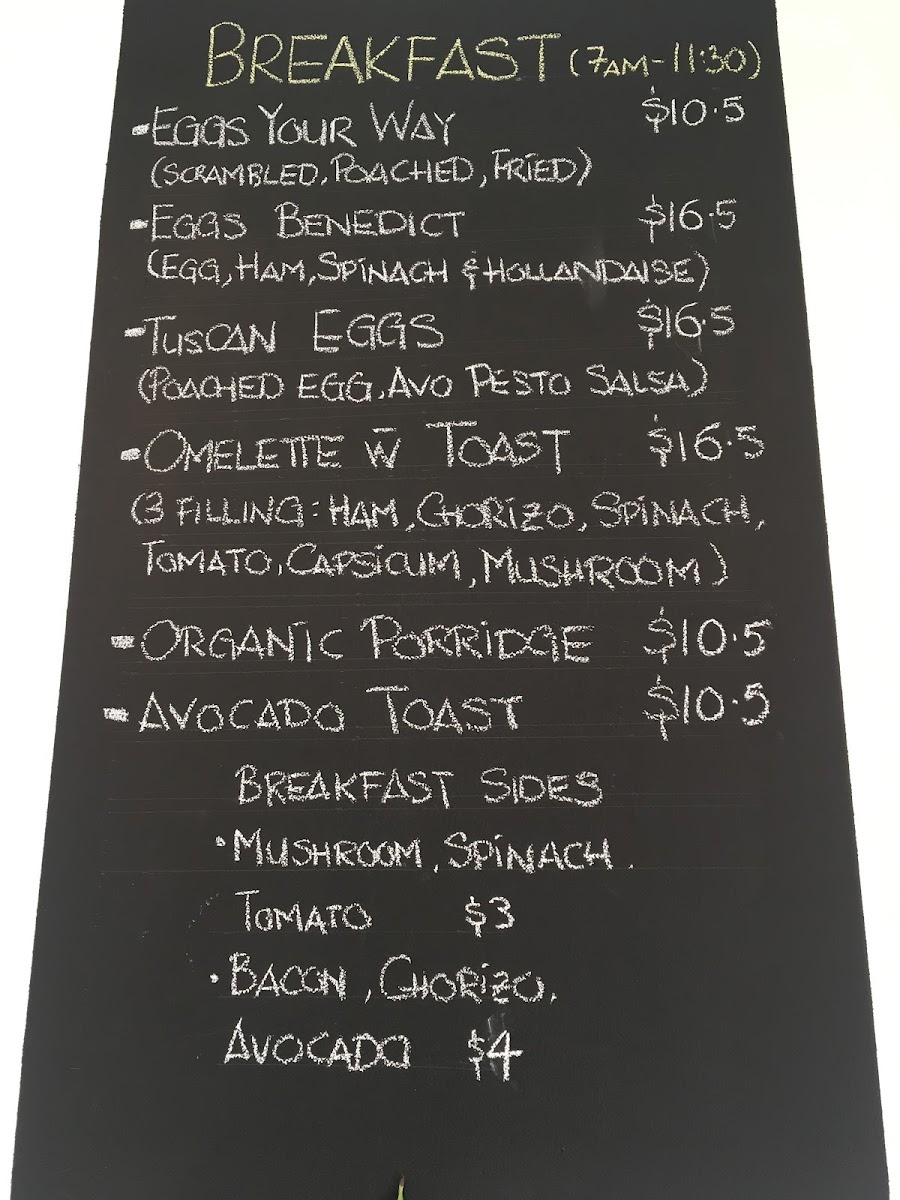 BREAKFAST (7AM-11:30)
-EGGS YOUR WAY $10.5
(SCRAMBLED, POACHED, FRIED)
-EGGS BENEDICT $16.5
(EGG, HAM, SPINACH & HOLLANDAISE)
-TUSCAN EGGS $16.5
(POACHED EGG, AVO PESTO SALSA)
-OMELETTE W̄ TOAST $16.5
(3 FILLING: HAM, CHORIZO, SPINACH,
TOMATO, CAPSICUM, MUSHROOM)
-ORGANIC PORRIDGE $10.5
-AVOCADO TOAST $10.5
BREAKFAST SIDES
·MUSHROOM, SPINACH.
TOMATO $3
·BACON, CHORIZO.
AVOCADO $4